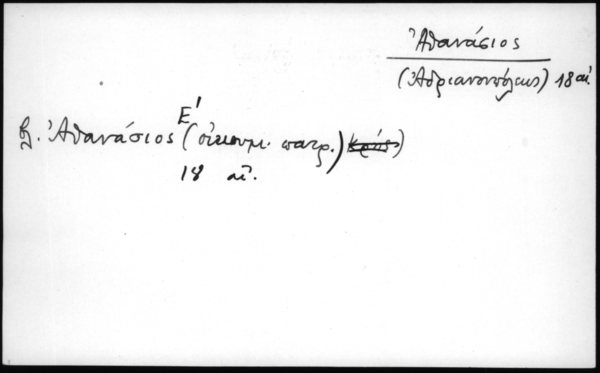 Ἀθανάσιος
(Ἀδριανουπόλεως) 18 αἰ.
Ε'
βλ. Ἀθανάσιος (οἰκουμ. πατρ.)
18 αἰ.